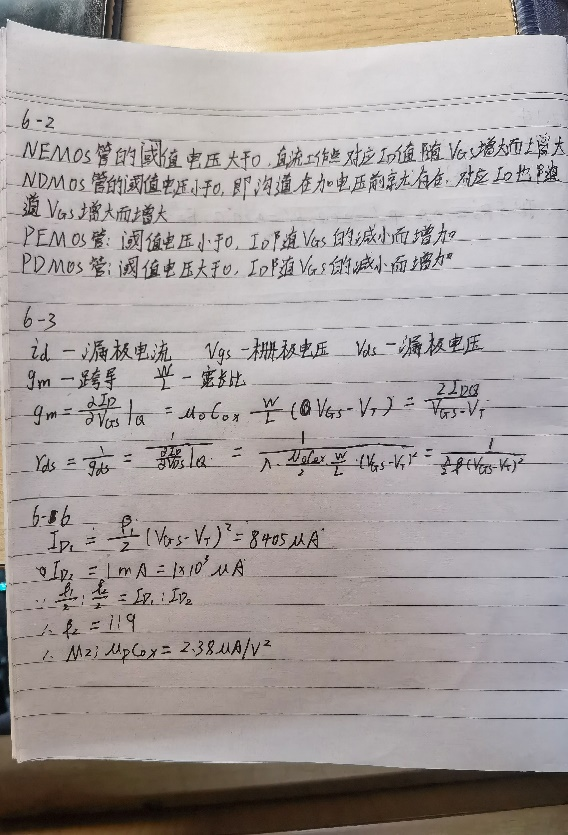 6-2
NEMOS管的阈值电压大于0，直流工作点对应ID值随VGS增大而增大
NDMOS管的阈值电压小于0，即沟道在加电压前就存在，对应ID也随
着VGS增大而增大
PEMOS管：阈值电压小于0，ID随VGS的减小而增加
PDMOS管：阈值电压大于0，ID随VGS的减小而增加
6-3
id —漏极电流 Vgs —栅极电压 Vds —漏极电压
gm —跨导 W/L —宽长比
gm = ∂ID/∂VGS|Q = μ0Cox W/L (VGS-VT) = 2IDQ/(VGS-VT)
rds = 1/gds = 1/(∂ID/∂VDS|Q) = 1/(λ·μ0Cox/2·W/L·(VGS-VT)²) = 1/(λ/2 β(VGS-VT)²)
6-6
ID1 = β1/2 (VGS-VT)² = 8405μA
ID2 = 1mA = 1×10³μA
∵ β1/2 : β2/2 = ID1 : ID2
∴ β2 = 119
∴ M2: μpCox = 2.38μA/V²